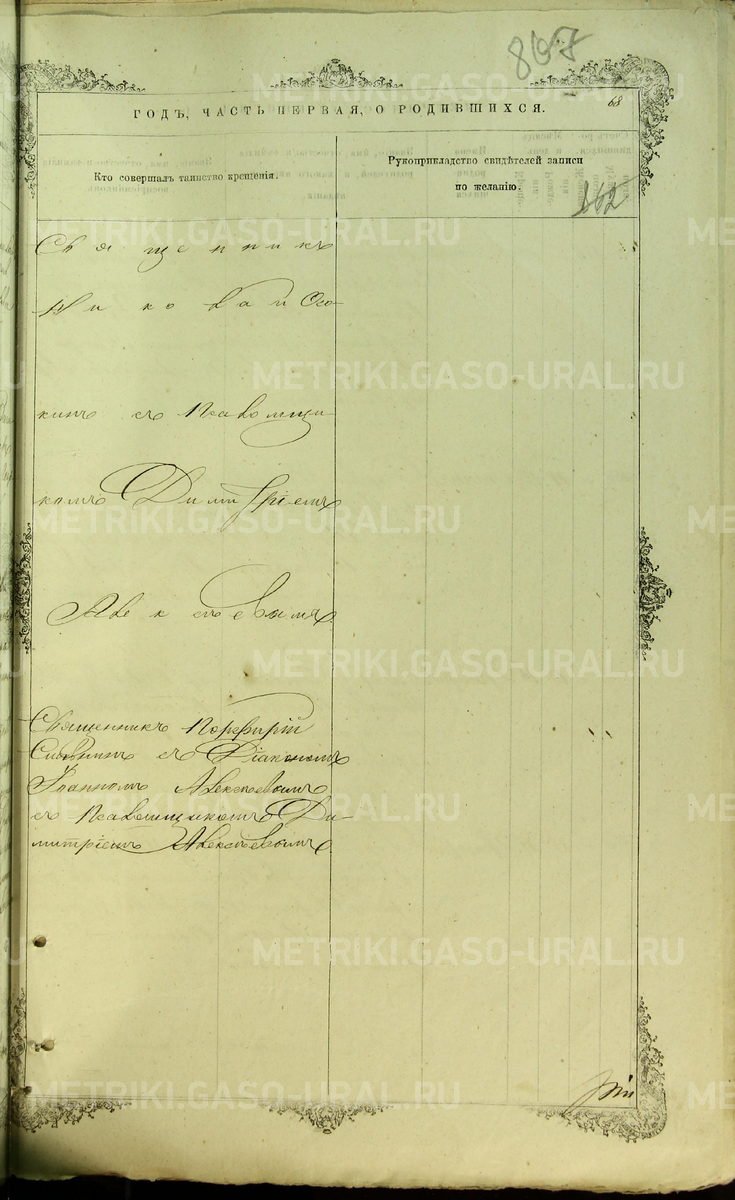 867
68
ГОДЪ, ЧАСТЬ ПЕРВАЯ, О РОДИВШИХСЯ.
Кто совершалъ таинство крещенія.
Рукоприкладство свидѣтелей записи
по желанію.
162
Священникъ
Николай Осо-
кинъ съ Псаломщи
комъ Димитріемъ
Алексѣевымъ
Священникъ Порфирій
съ Діакономъ
Іоанномъ Алексѣевымъ
съ Псаломщикомъ Ди-
митріемъ Алексѣевымъ
METRIKI.GASO-URAL.RU